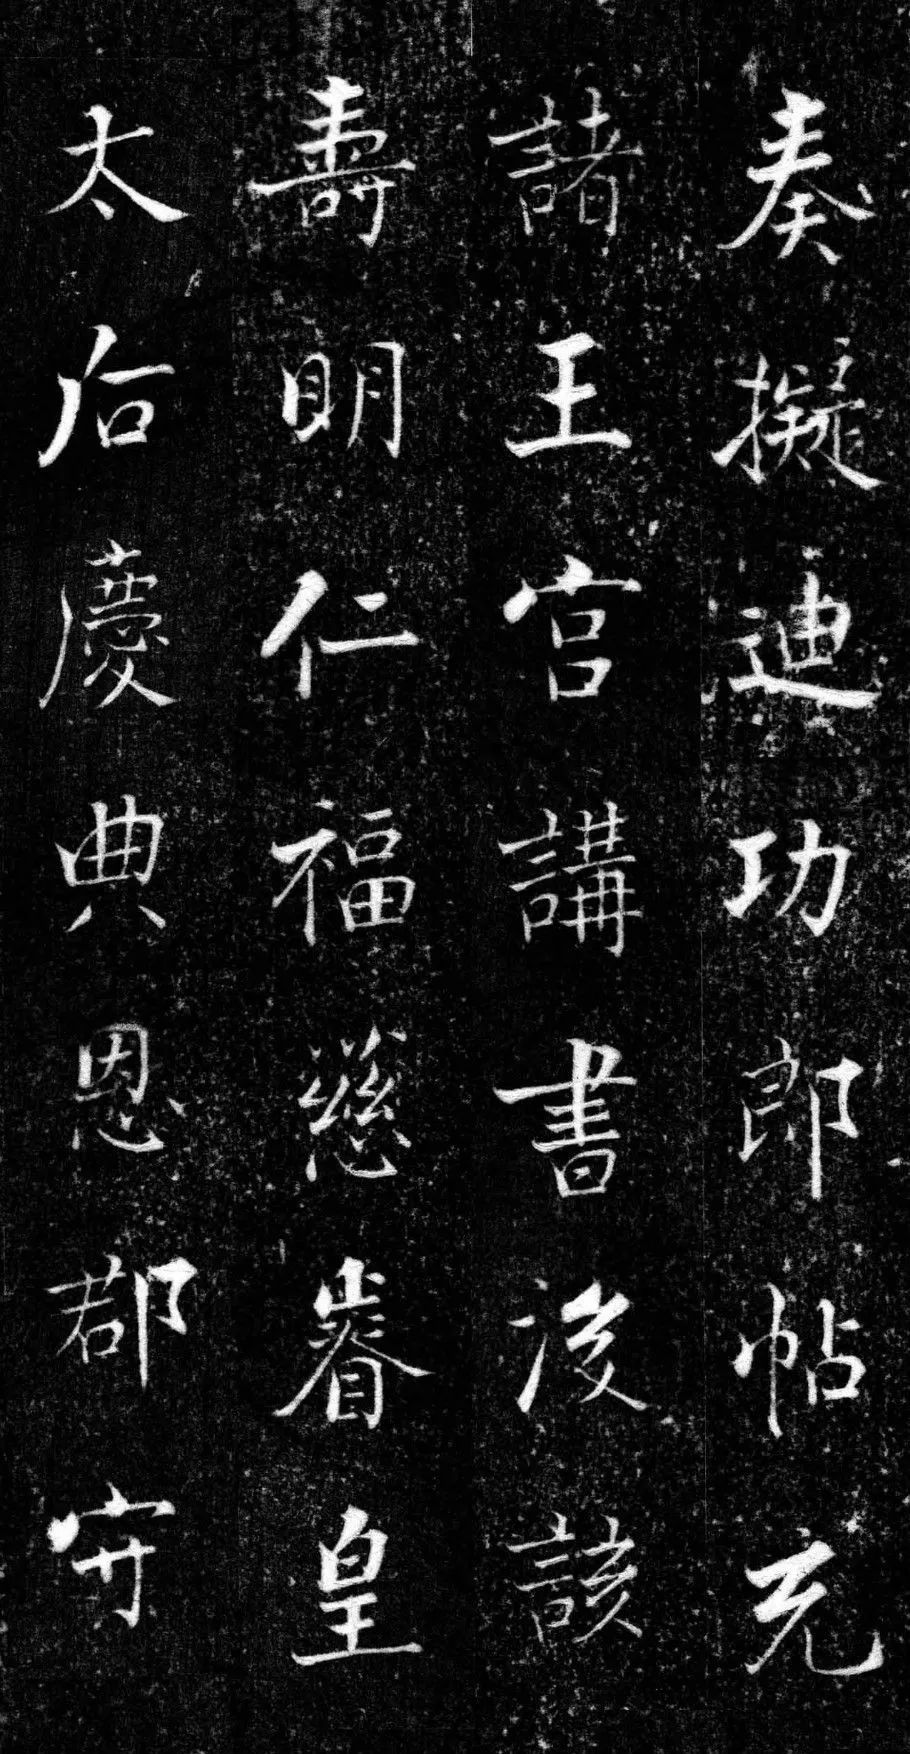 奏擬迪功郎帖充
諸王宮講書後該
壽明仁福慈睿皇
太后慶典恩郡守